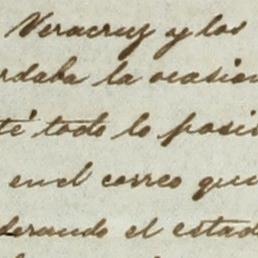 Veracruz y los
rdaba la ocasion
té todo lo posi
en el correo que
derando el estad